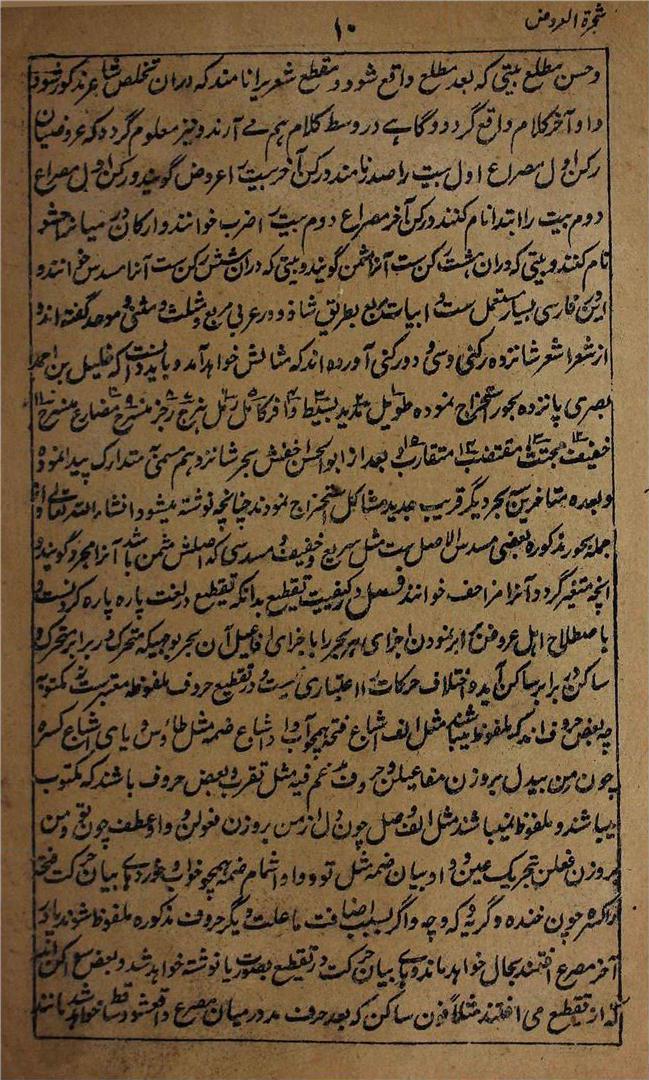 شجرة العروض
۱۰
وحسن مطلع بیتی که بعد مطلع واقع شود و مقطع شعریرا نامند که دران تخلص شاعر مذکور شود
و او آخر کلام واقع گردد و گاہے در وسط کلام ہم مے آرند و نیز معلوم گردد که عروضیان
رکن اول مصراع اول بیت را صدر نامند و رکن آخر بیت را عروض گویند و رکن اول مصراع
دوم بیت را ابتدا نام کنند و رکن آخر مصراع دوم بیت را ضرب خوانند و ارکان در میان را حشو
نام کنند و بیتی که دران هشت رکن ست آنرا مثمن گویند و بیتی که دران شش رکن ست آنرا مسدس خوانند و
این در فارسی بسیار مستعمل ست و ابیات مربع بطریق شاذ و در عربی مربع و مثلث و مثنی و موحد گفته اند و
از شعرا شعر شانزده رکنی و سی و دو رکنی آورده اند که مثالش خواهد آمد و باید دانست که خلیل بن احمد
بصری پانزده بحور استخراج نموده طویل مدید بسیط وافر کامل رمل ہزج رجز منسرح مضارع سریع
خفیف مجتث مقتضب متقارب و بعد از ابو الحسن اخفش بحر شانزدہم مسمی متدارک پیدا نموده
و بعده متاخرین سه بحر دیگر قریب جدید مشاکل استخراج نمودند چنانچه نوشته میشود انشاء الله تعالی و از
جمله بحور مذکوره بعضی مسدس الاصل ست مثل سریع و خفیف و مسدسی که اصلش مثمن باشد آنرا مجزو گویند و
انچه متغیر گردد آنرا مزاحف خوانند فصل در کیفیت تقطیع بدانکه تقطیع در لغت پاره پاره کردنست و
باصطلاح اہل عروض برابر نمودن اجزای ہر بحر را با جزای افاعیل آن بحر بوجہیکہ متحرک در برابر متحرک و
ساکن در برابر ساکن آید و اختلاف حرکات را اعتباری نیست و در تقطیع حروف ملفوظه معتبر ست نه مکتوبه
چه بعض حروف اند که ملفوظ میباشند مثل الف اشباع فتحه ہمچو آب و واو اشباع ضمه مثل طاؤس و یای اشباع کسره
چون من بیدل بر وزن مفاعیلن و حروف مدغم فیه مثل تقرب و بعض حروف باشند که مکتوب
میباشند و ملفوظ نمیباشند مثل الف وصل چون دل از من بر وزن فعولن و واو عطف چون تو و من
بر وزن فعلن بتحریک عین و واو بیان ضمه مثل تو و واو اشمام ضمه ہمچو خواب و خورد و ہاے بیان حرکت فتحه
و کسره چون خنده و گریه و که و چه و اگر بسبب اضافت یا علت دیگر حروف مذکوره ملفوظ شوند یا در
آخر مصرع افتند بحال خواہد ماند و ہاے بیان حرکت در تقطیع بصورت یا نوشته خواہد شد و بعض سواکن اند
که از تقطیع می افتند مثلاً نون ساکن که بعد حرف مد در میان مصرع واقع شود ساقط خواہد شد مانند